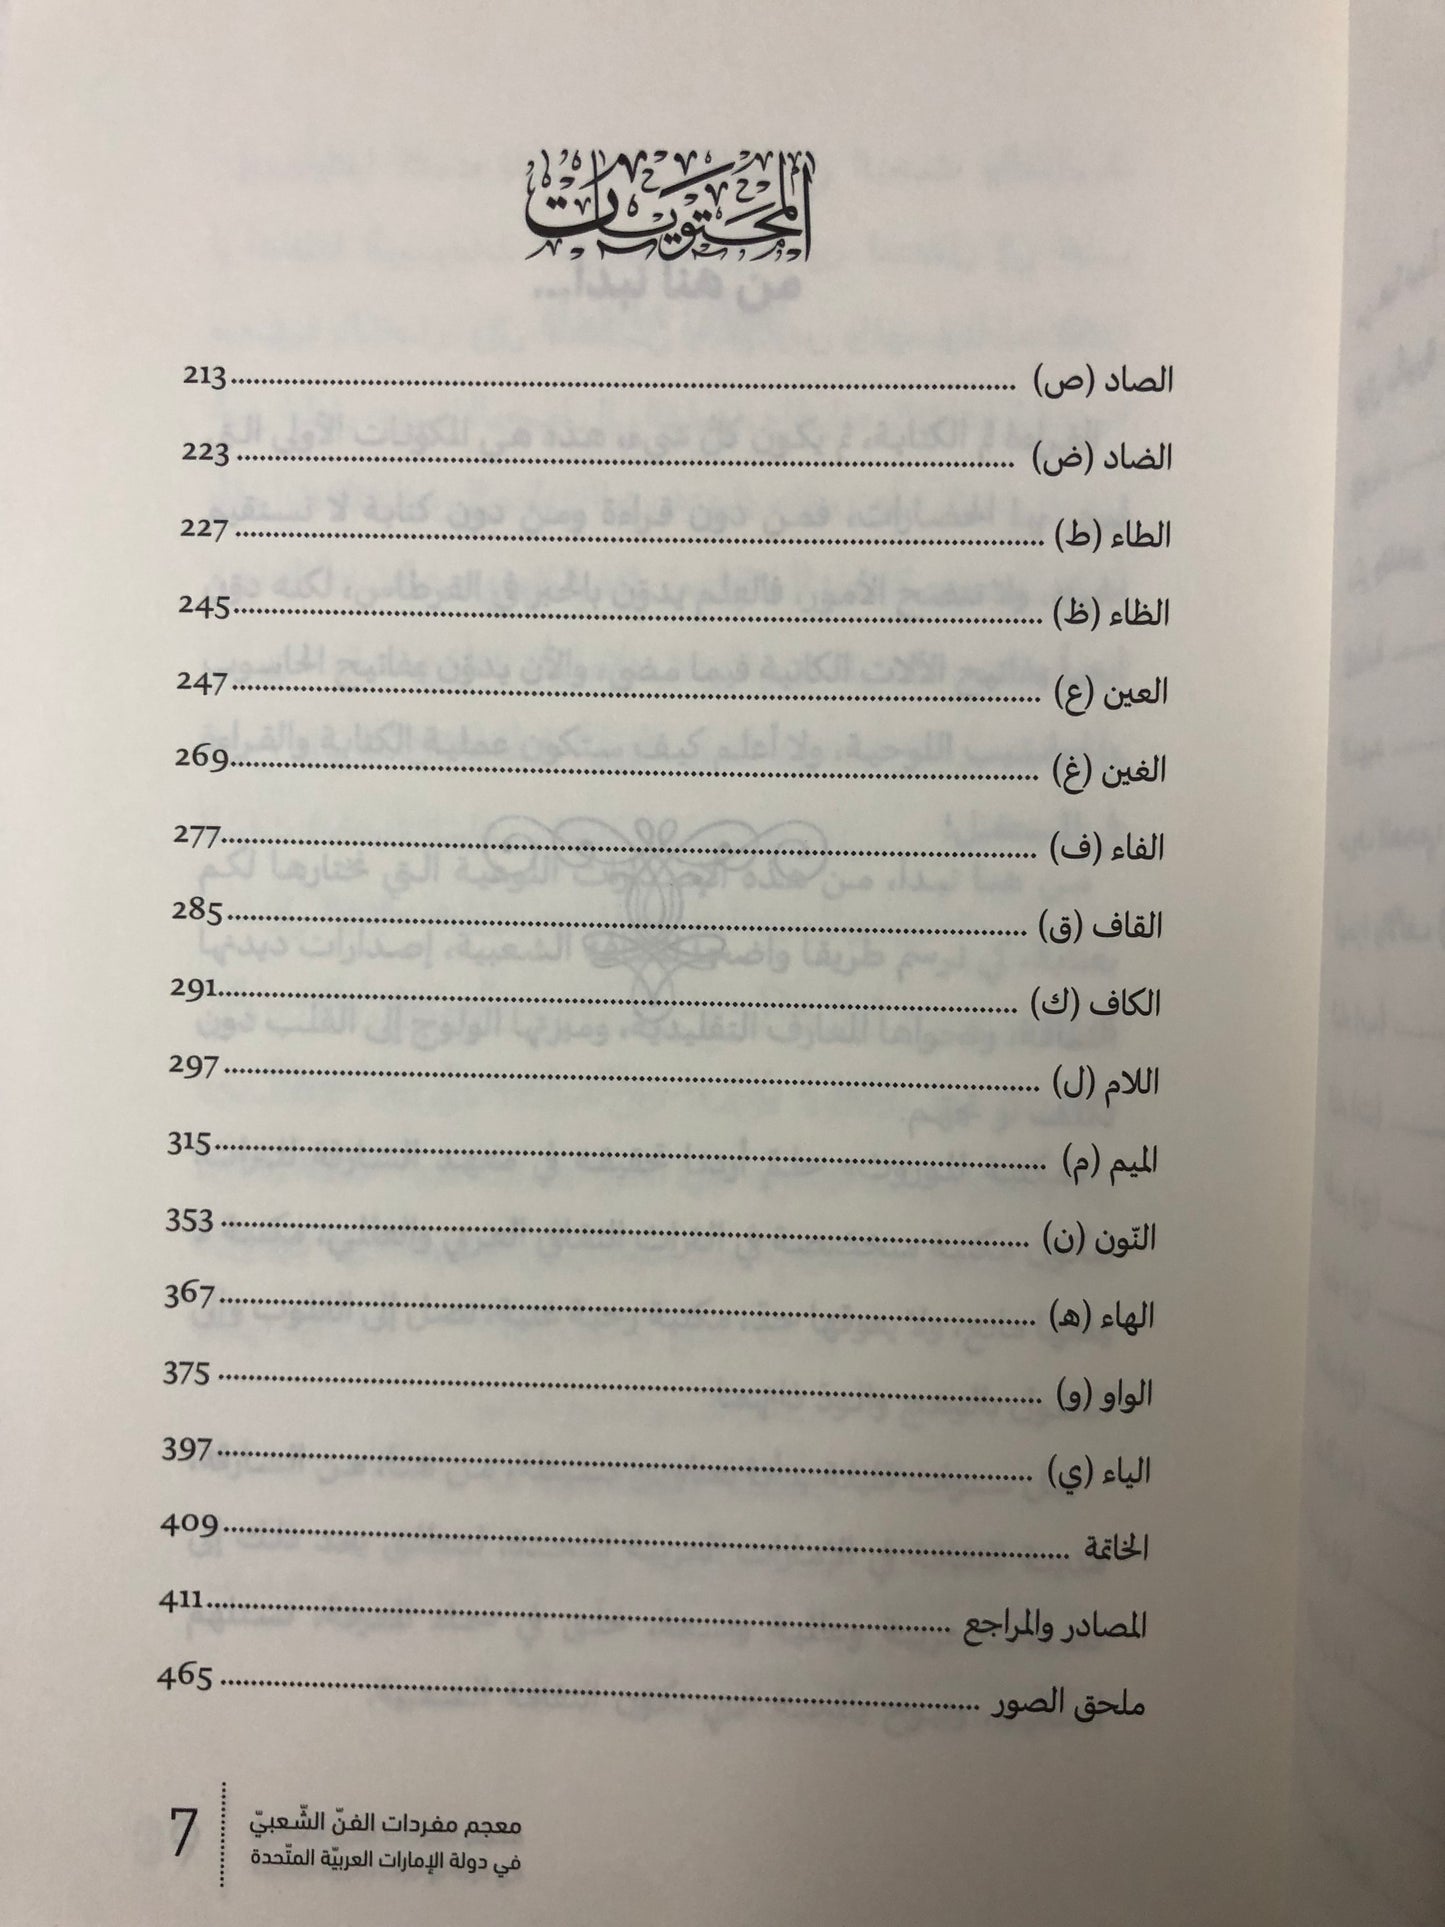 المحتويات
الصاد (ص) ........ 213
الضاد (ض) ........ 223
الطاء (ط) ........ 227
الظاء (ظ) ........ 245
العين (ع) ........ 247
الغين (غ) ........ 269
الفاء (ف) ........ 277
القاف (ق) ........ 285
الكاف (ك) ........ 291
اللام (ل) ........ 297
الميم (م) ........ 315
النّون (ن) ........ 353
الهاء (هـ) ........ 367
الواو (و) ........ 375
الياء (ي) ........ 397
الخاتمة ........ 409
المصادر والمراجع ........ 411
ملحق الصور ........ 465
معجم مفردات الفنّ الشّعبيّ
في دولة الإمارات العربيّة المتّحدة
7